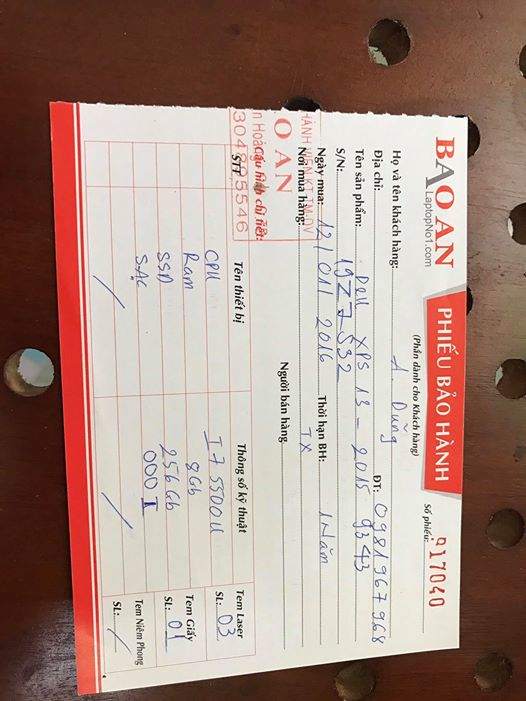 BẢO AN
LaptopNo1.com
PHIẾU BẢO HÀNH
(Phần dành cho khách hàng)
Số phiếu: 917040
Họ và tên khách hàng: A. Dũng
Địa chỉ: ĐT: 0981967968
Tên sản phẩm: Dell XPS 13 - 2015 9343
S/N: 19Z7S32
Ngày mua: 12/01/2016 Thời hạn BH: 1 Năm
HÀNH VIÊN KT TM DV
Nơi mua hàng: TX
O AN
Người bán hàng
Cấu hình chi tiết:
3048
5546
STT Tên thiết bị Thông số kỹ thuật Tem Laser
CPU I7 5500U SL: 03
Ram 8Gb Tem Giấy
SSD 256Gb SL: 01
SẠC 000I Tem Niêm Phong
/ / SL: /